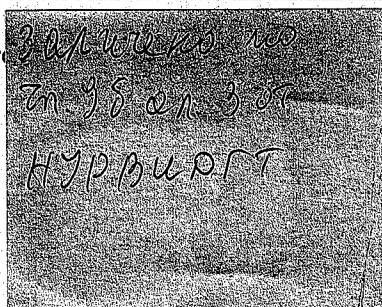 Заличено по
чл. 9б ал. 3 от
НУРВИДГТ